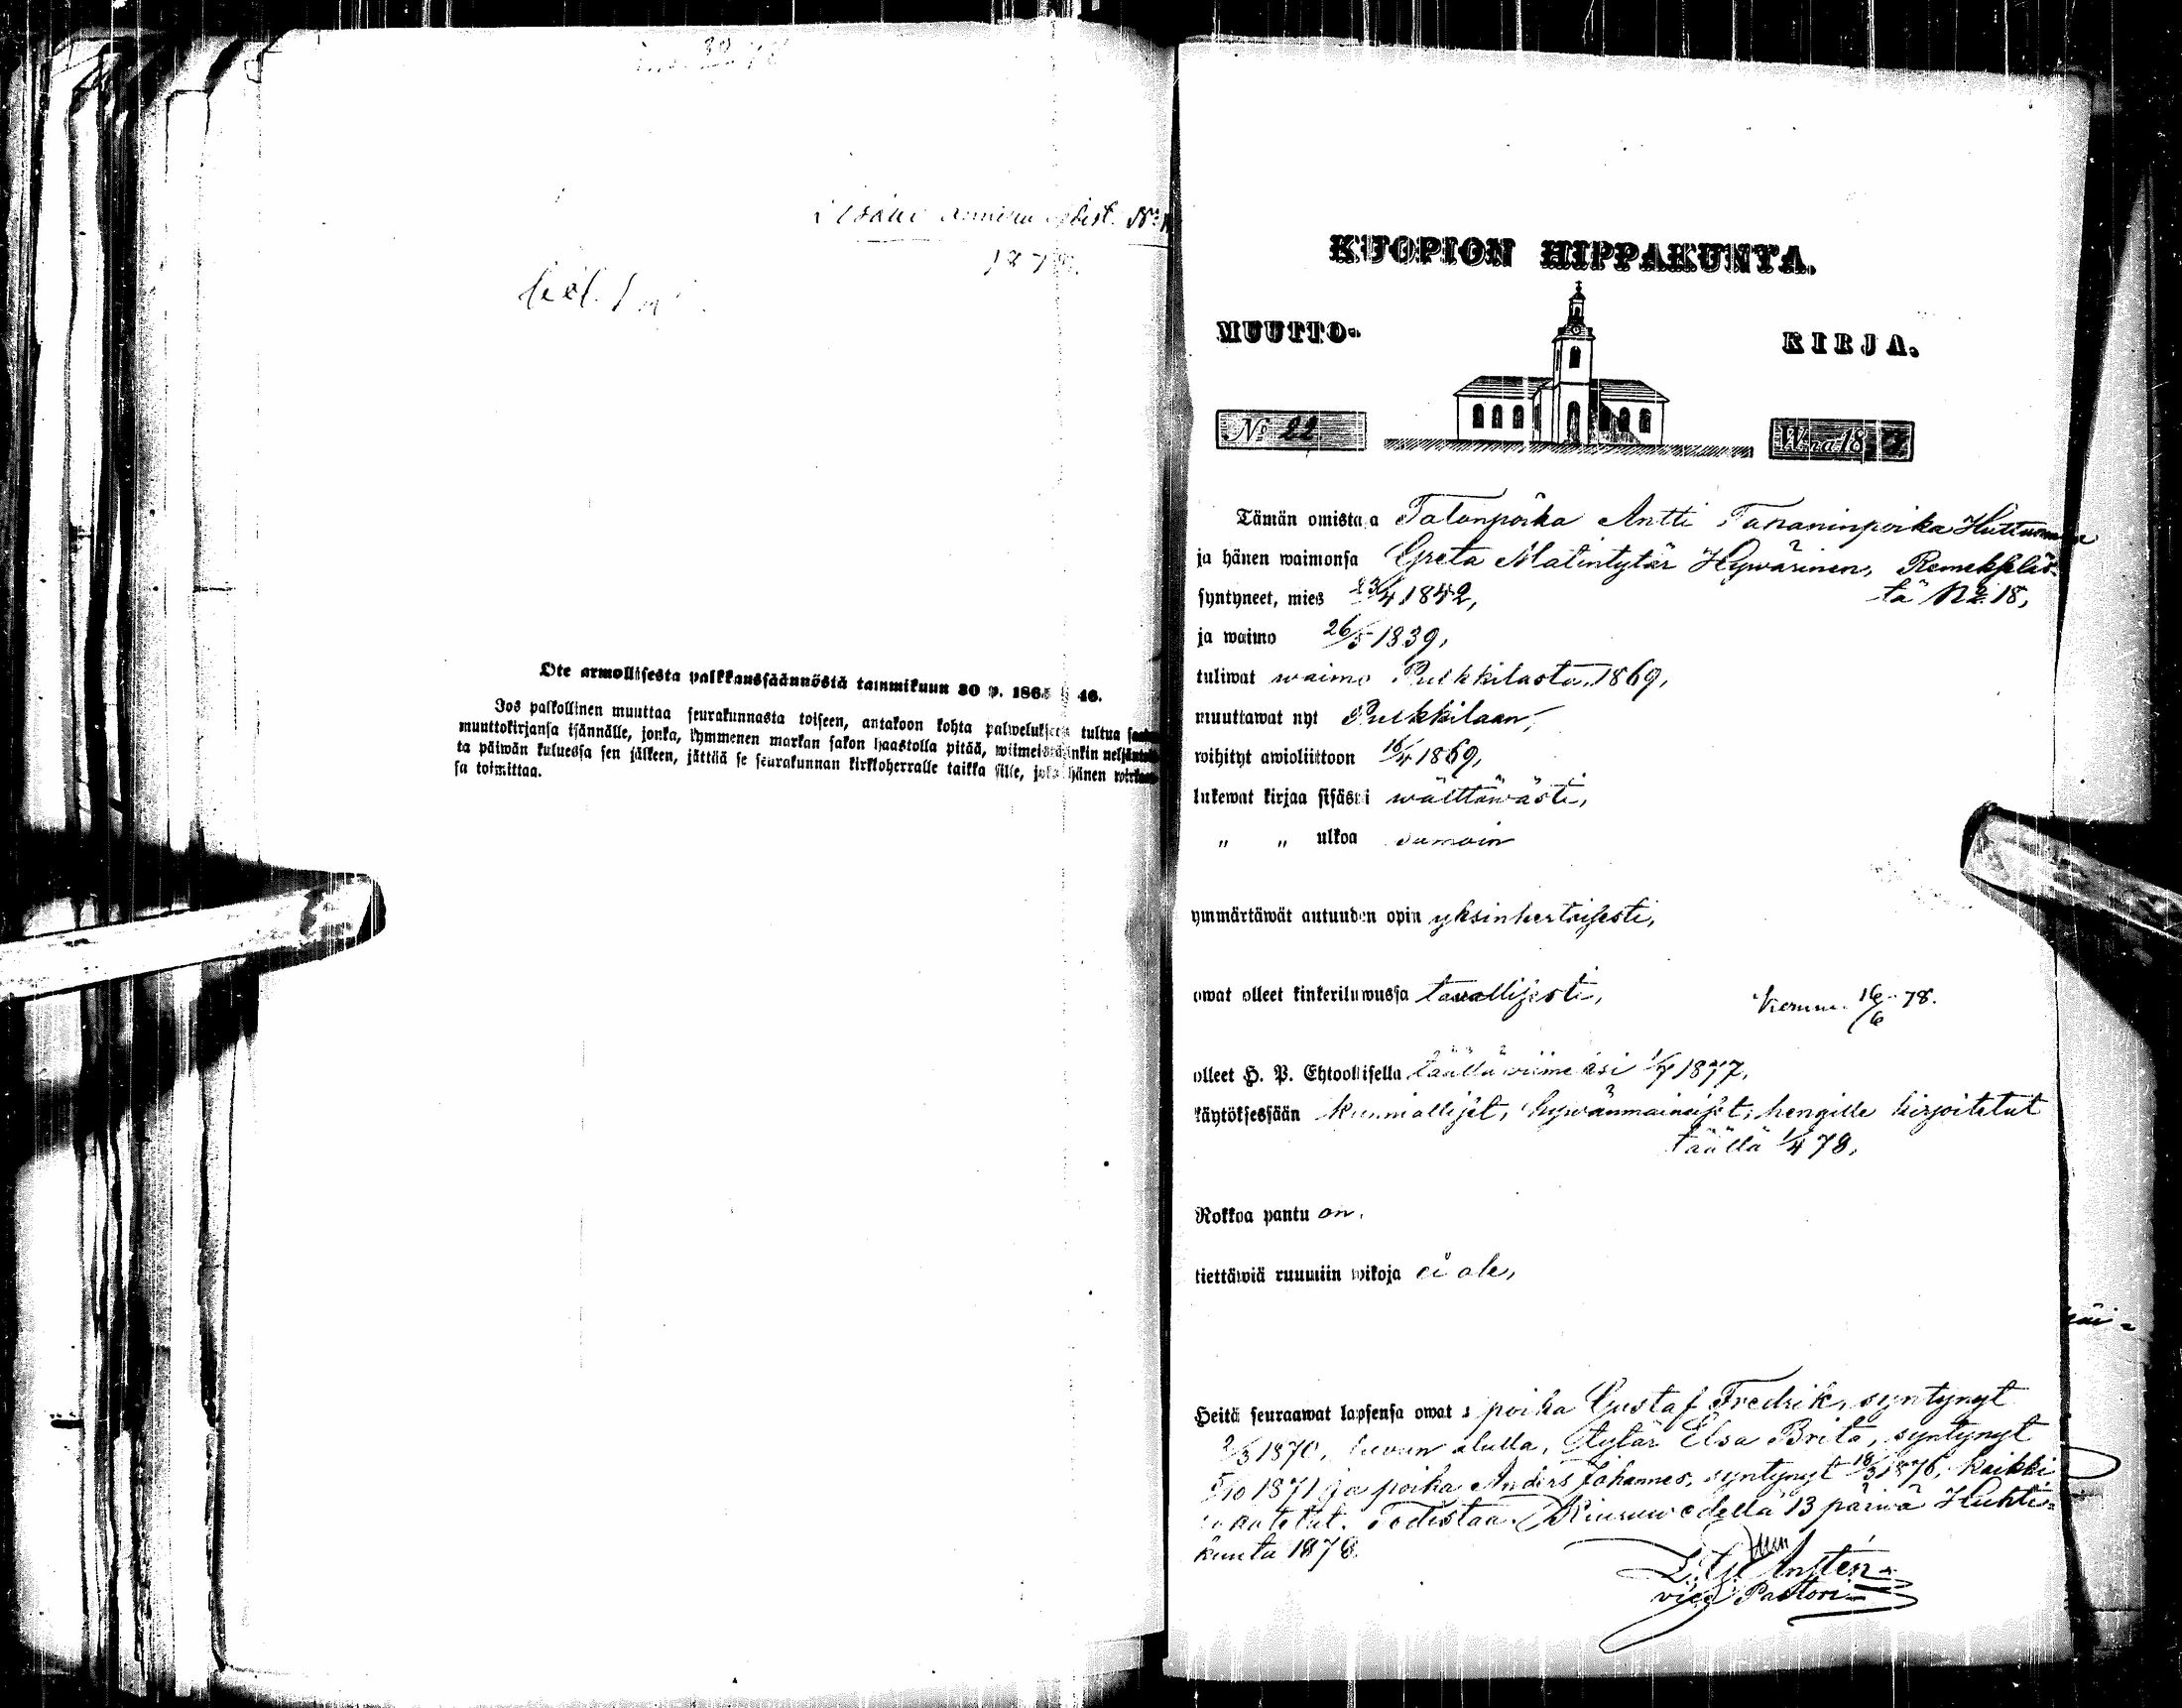 1878.
Ote armollisesta palkkaussäännöstä tammikuun 30 p. 1865 § 46.
Jos palkollinen muuttaa seurakunnasta toiseen, antakoon kohta palwelukseen tultua
muuttokirjansa isännälle, jonka, kymmenen markan sakon haastolla pitää, wiimeistäänkin
ta päiwän kuluessa sen jälkeen, jättää se seurakunnan kirkkoherralle taikka sille, joka hänen
sa toimittaa.
KUOPION HIPPAKUNTA.
MUUTTO- KIRJA.
No 22 Wna 187
Tämän omistaja Talonpoika Antti Tananinpoika Huttunen
ja hänen waimonsa Greta Matintytär Hywärinen, Remekshelis-
syntyneet, mies 23/4 1842, tä No 18,
ja waimo 26/5 1839,
tuliwat waimo Pulkkilasta 1869,
muuttawat nyt Pulkkilaan,
wihityt awioliittoon 16/4 1869,
lukewat kirjaa sisästä wälttäwästi,
" " ulkoa samoin
ymmärtäwät autuuden opin yksinkertaisesti,
owat olleet kinkeriluwussa tawallisesti,
16/6 78.
olleet H. P. Ehtoollisella täällä wiimeksi 1/7 1877,
käytöksessään kunnialliset, hywänmainiset, hengille kirjoitetut
täällä 1/4 78,
Rokkoa pantu on.
tiettäwiä ruumiin wikoja ei ole,
Heitä seuraawat lapsensa owat: poika Gustaf Fredrik, syntynyt
2/3 1870, luwun alulla, tytär Elsa Brita, syntynyt
5/10 1871 ja poika Anders Johannes, syntynyt 18/3 1876, kaikki
rokotetut. Todistaa Kiuruwedellä 13 päiwä Huhti-
kuuta 1878.
vice Pastori